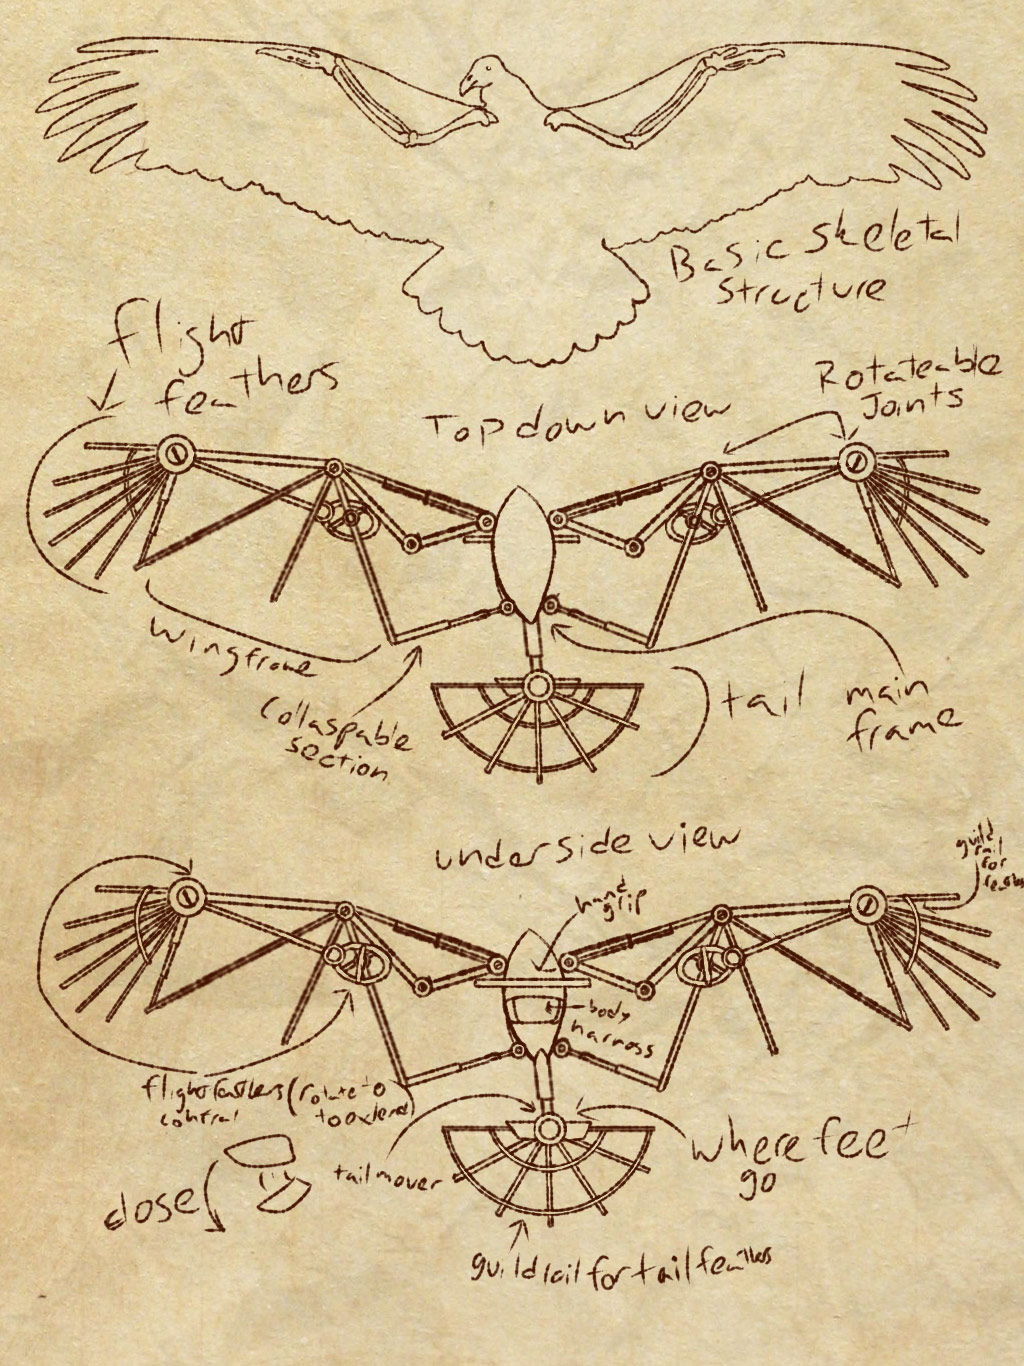 Basic skeletal
structure
flight
feathers
Top down view
Rotateable
Joints
wingframe
collaspable
section
tail
main
frame
underside view
guild
rail
for
hand
grip
body
harness
flight feathers (rotate to
control
tail mover
where feet
go
guild rail for tail feathers